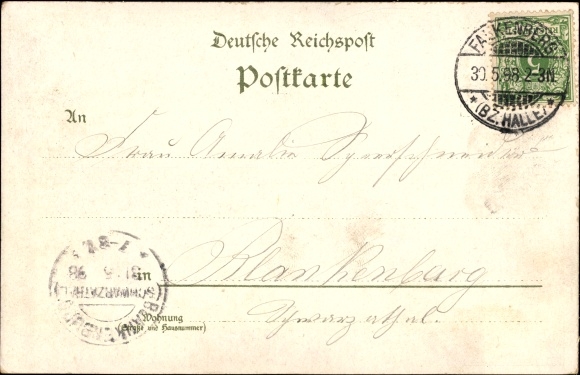 Deutsche Reichspost
Postkarte
FALKENBERG
30.5.98.2-3N.
* (BZ. HALLE) *
5
An
Frau Amalie Sperschneider
in Blankenburg
Schwarzathal.
Wohnung
(Straße und Hausnummer)
BLANKENBURG
SCHWARZATHAL
31 5 98
7-8V.